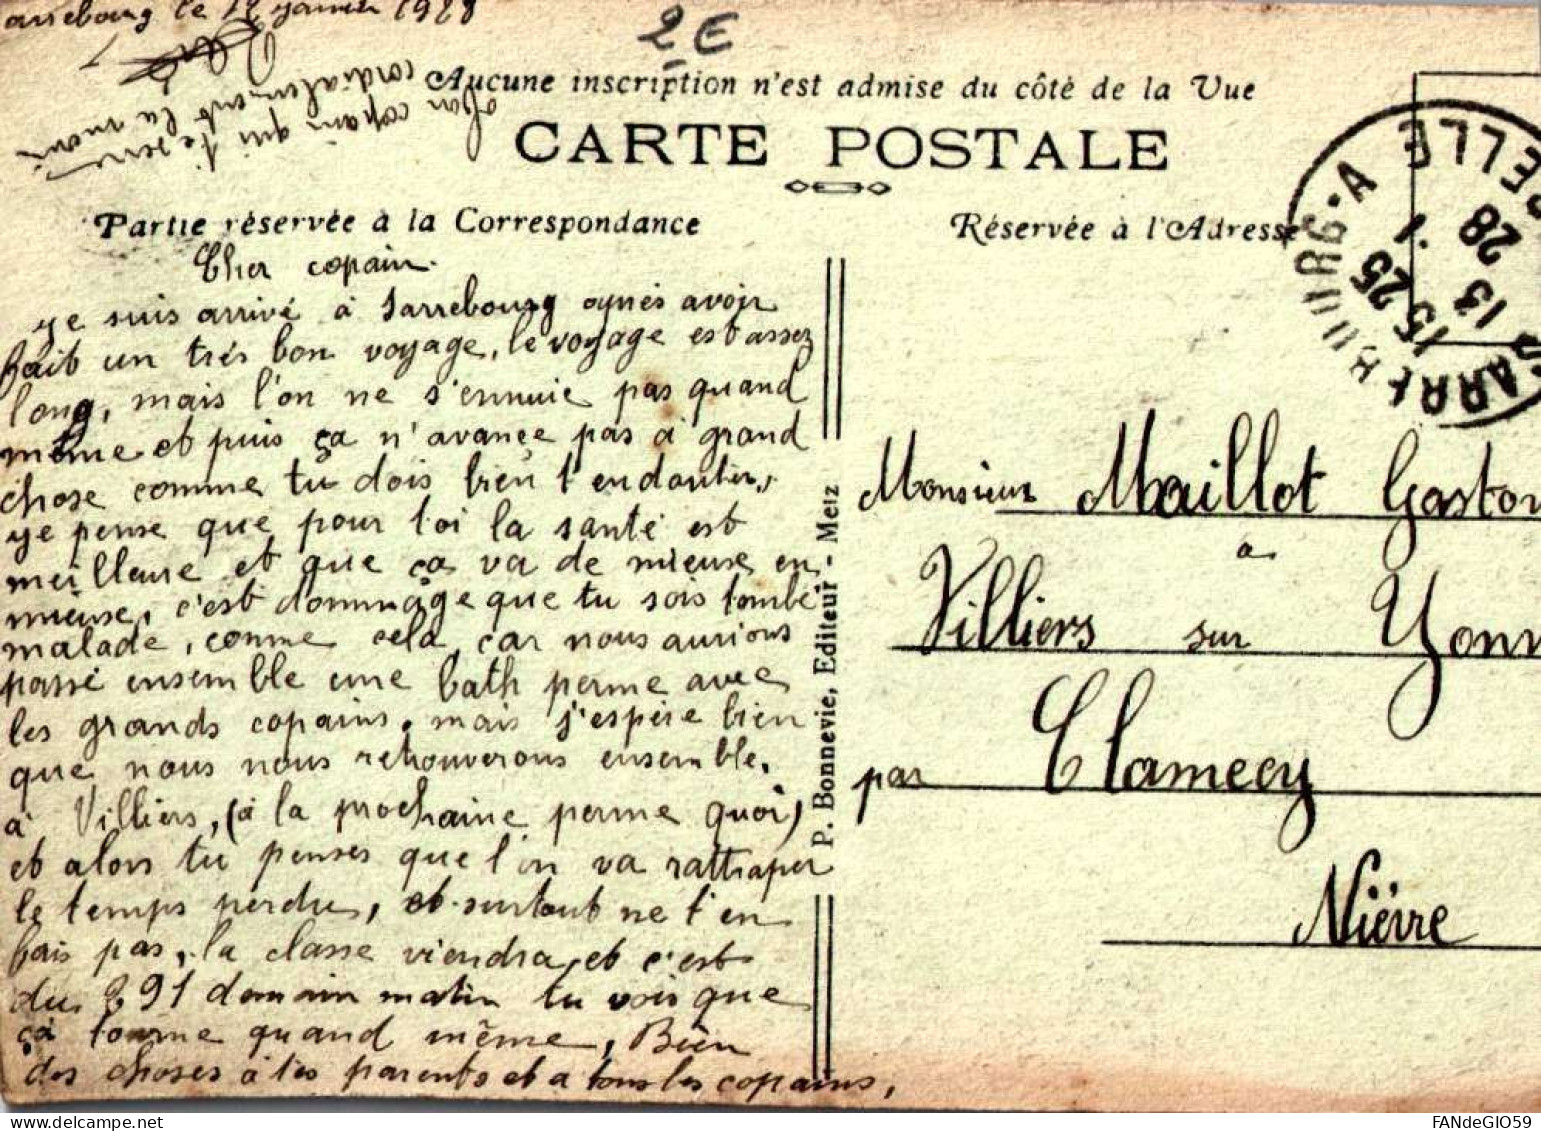 arrebourg le 12 janvier 1928
2 E
ton copain qui te serre
cordialement la main
Aucune inscription n'est admise du côté de la Vue
CARTE POSTALE
Partie réservée à la Correspondance
Réservée à l'Adresse
SARREBOURG · A
15 25
13 · 1
28
Cher copain.
je suis arrivé à Sarrebourg après avoir
fait un très bon voyage, le voyage est assez
long, mais l'on ne s'ennuie pas quand
même et puis ça n'avance pas à grand
chose comme tu dois bien t'en douter,
je pense que pour toi la santé est
meilleure et que ça va de mieuse en
mieuse, c'est dommage que tu sois tombé
malade, comme cela, car nous aurions
passé ensemble une bath perme avec
les grands copains, mais j'espère bien
que nous nous retrouverons ensemble,
à Villiers, (à la prochaine perme quoi)
et alors tu penses que l'on va rattraper
le temps perdue, et surtout ne t'en
fais pas, la classe viendra, et c'est
du 291 demain matin tu vois que
ça tourne quand même, Bien
des choses à tes parents et a tous les copains,
P. Bonnevie, Editeur - Metz
Monsieur Maillot Gaston
à
Villiers sur Yonn
par Clamecy
Nièvre
FANdeGIO59